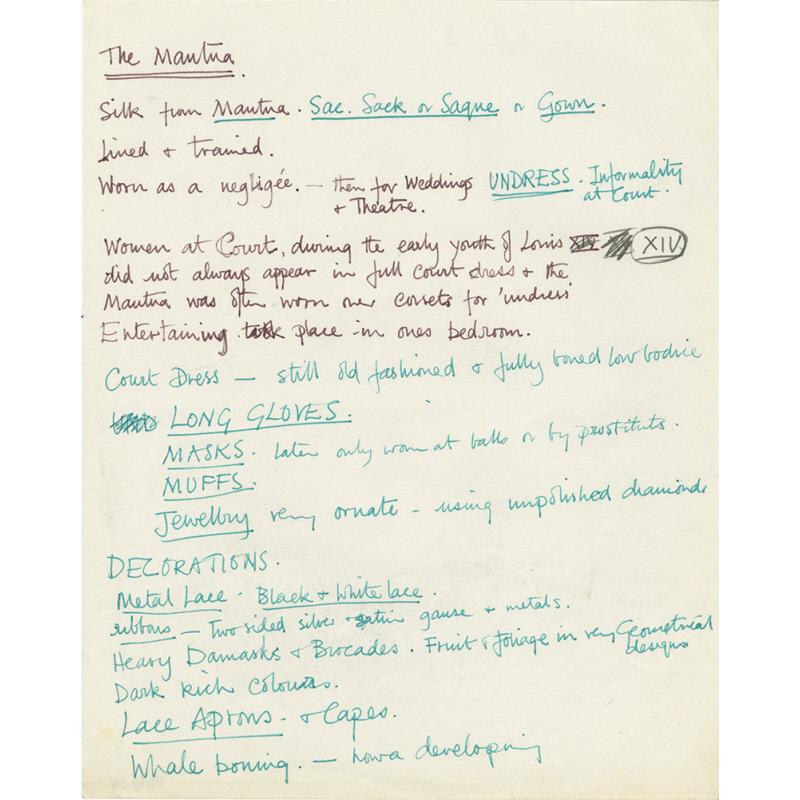 The Mantua.
Silk from Mantua. Sac. Sack or Saque or Gown.
Lined + trained.
Worn as a negligée. — then for Weddings UNDRESS. Informality
+ Theatre. at Court.
Women at Court, during the early youth of Louis XIV
did not always appear in full court dress + the
Mantua was often worn over corsets for 'undress'
Entertaining took place in ones bedroom.
Court Dress — still old fashioned + fully boned low bodice
LONG GLOVES.
MASKS. Later only worn at balls or by prostitutes.
MUFFS.
Jewellry very ornate - using unpolished diamonds
DECORATIONS.
Metal Lace. Black + White lace.
ribbons — Two sided silver + satin gause + metals.
Heavy Damasks + Brocades. Fruit + foliage in very Geometrical
designs
Dark rich colours.
Lace Aprons. + Capes.
Whale boning. — developing